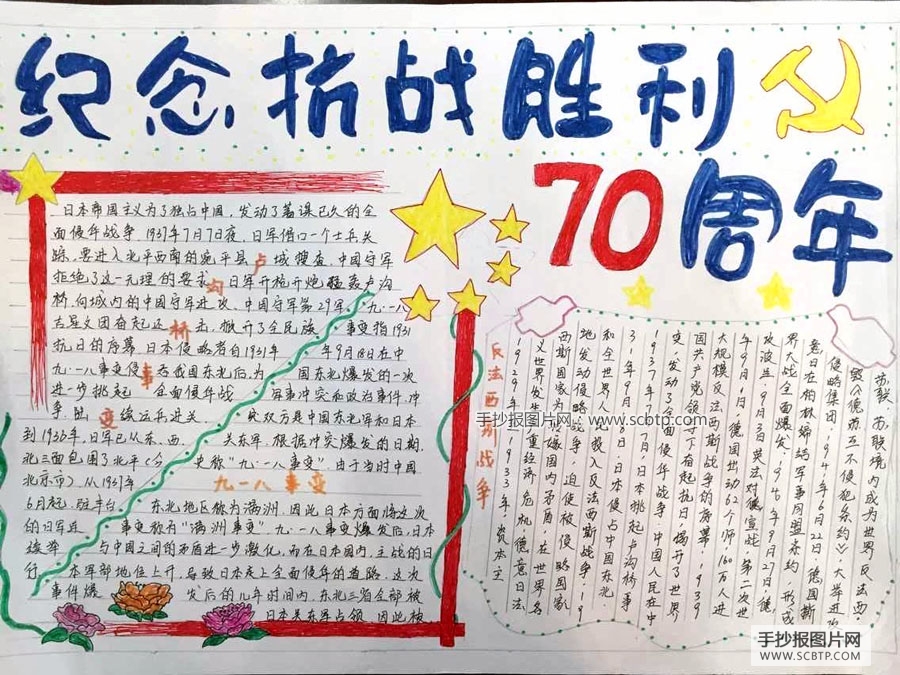 纪念抗战胜利
70周年
日本帝国主义为了独占中国，发动了蓄谋已久的全
面侵华战争，1937年7月7日夜，日军借口一个士兵失
踪，要进入北平西南的宛平县城搜查，中国守军
拒绝了这一无理的要求，日军开枪开炮猛轰卢沟
桥，向城内的中国守军进攻，中国守军第29军
吉星文团奋起还击，掀开了全民族
抗日的序幕
日本侵略者自1931年
九·一八事变侵吞我国东北后，为
进一步挑起全面侵华战
争，陆续运兵进关
到1936年，日军已从东、西、
北三面包围了北平（今
北京市）从1937年
6月起，驻丰台
的日军连
续举
行
卢沟桥事变
九·一八事变指1931
年9月18日在中
国东北爆发的一次
军事冲突和政治事件，冲
突双方是中国东北军和日本
关东军，根据冲突爆发的日期，
史称"九·一八事变"，由于当时中国
东北地区称为满洲，因此日本方面将这次
事变称为"满洲事变"九·一八事变爆发后，日本
与中国之间的矛盾进一步激化，而在日本国内，主战的日
本军部地位上升，导致日本走上全面侵华的道路，这次
事件爆发后的几年时间内，东北三省全部被
日本关东军占领，因此被
九一八事变
反法西斯战争
1929年—1933年，资本主
义世界发生严重经济危机，德意日法
西斯国家为
地发动侵略战争，迫使被侵略国家
和全世界人民投入反法西斯战争，19
31年9月18日，日本侵占中国东北，
1937年7月7日日本挑起卢沟桥事
变，发动了全面侵华战争，中国人民在中
国共产党领导下奋起抗日，揭开了世界
大规模反法西斯战争的序幕，1939
年9月1日，德国出动62个师160万人进
攻波兰，9月3日英法对德宣战，第二次世
界大战全面爆发，1940年9月27日，德、
意、日在柏林缔结军事同盟条约，形成
侵略集团，1941年6月22日德国撕
毁《苏德互不侵犯条约》，大举进攻
苏联，苏联境内成为世界反法西
手抄报图片网 www.scbtp.com
手抄报图片网
WWW.SCBTP.COM